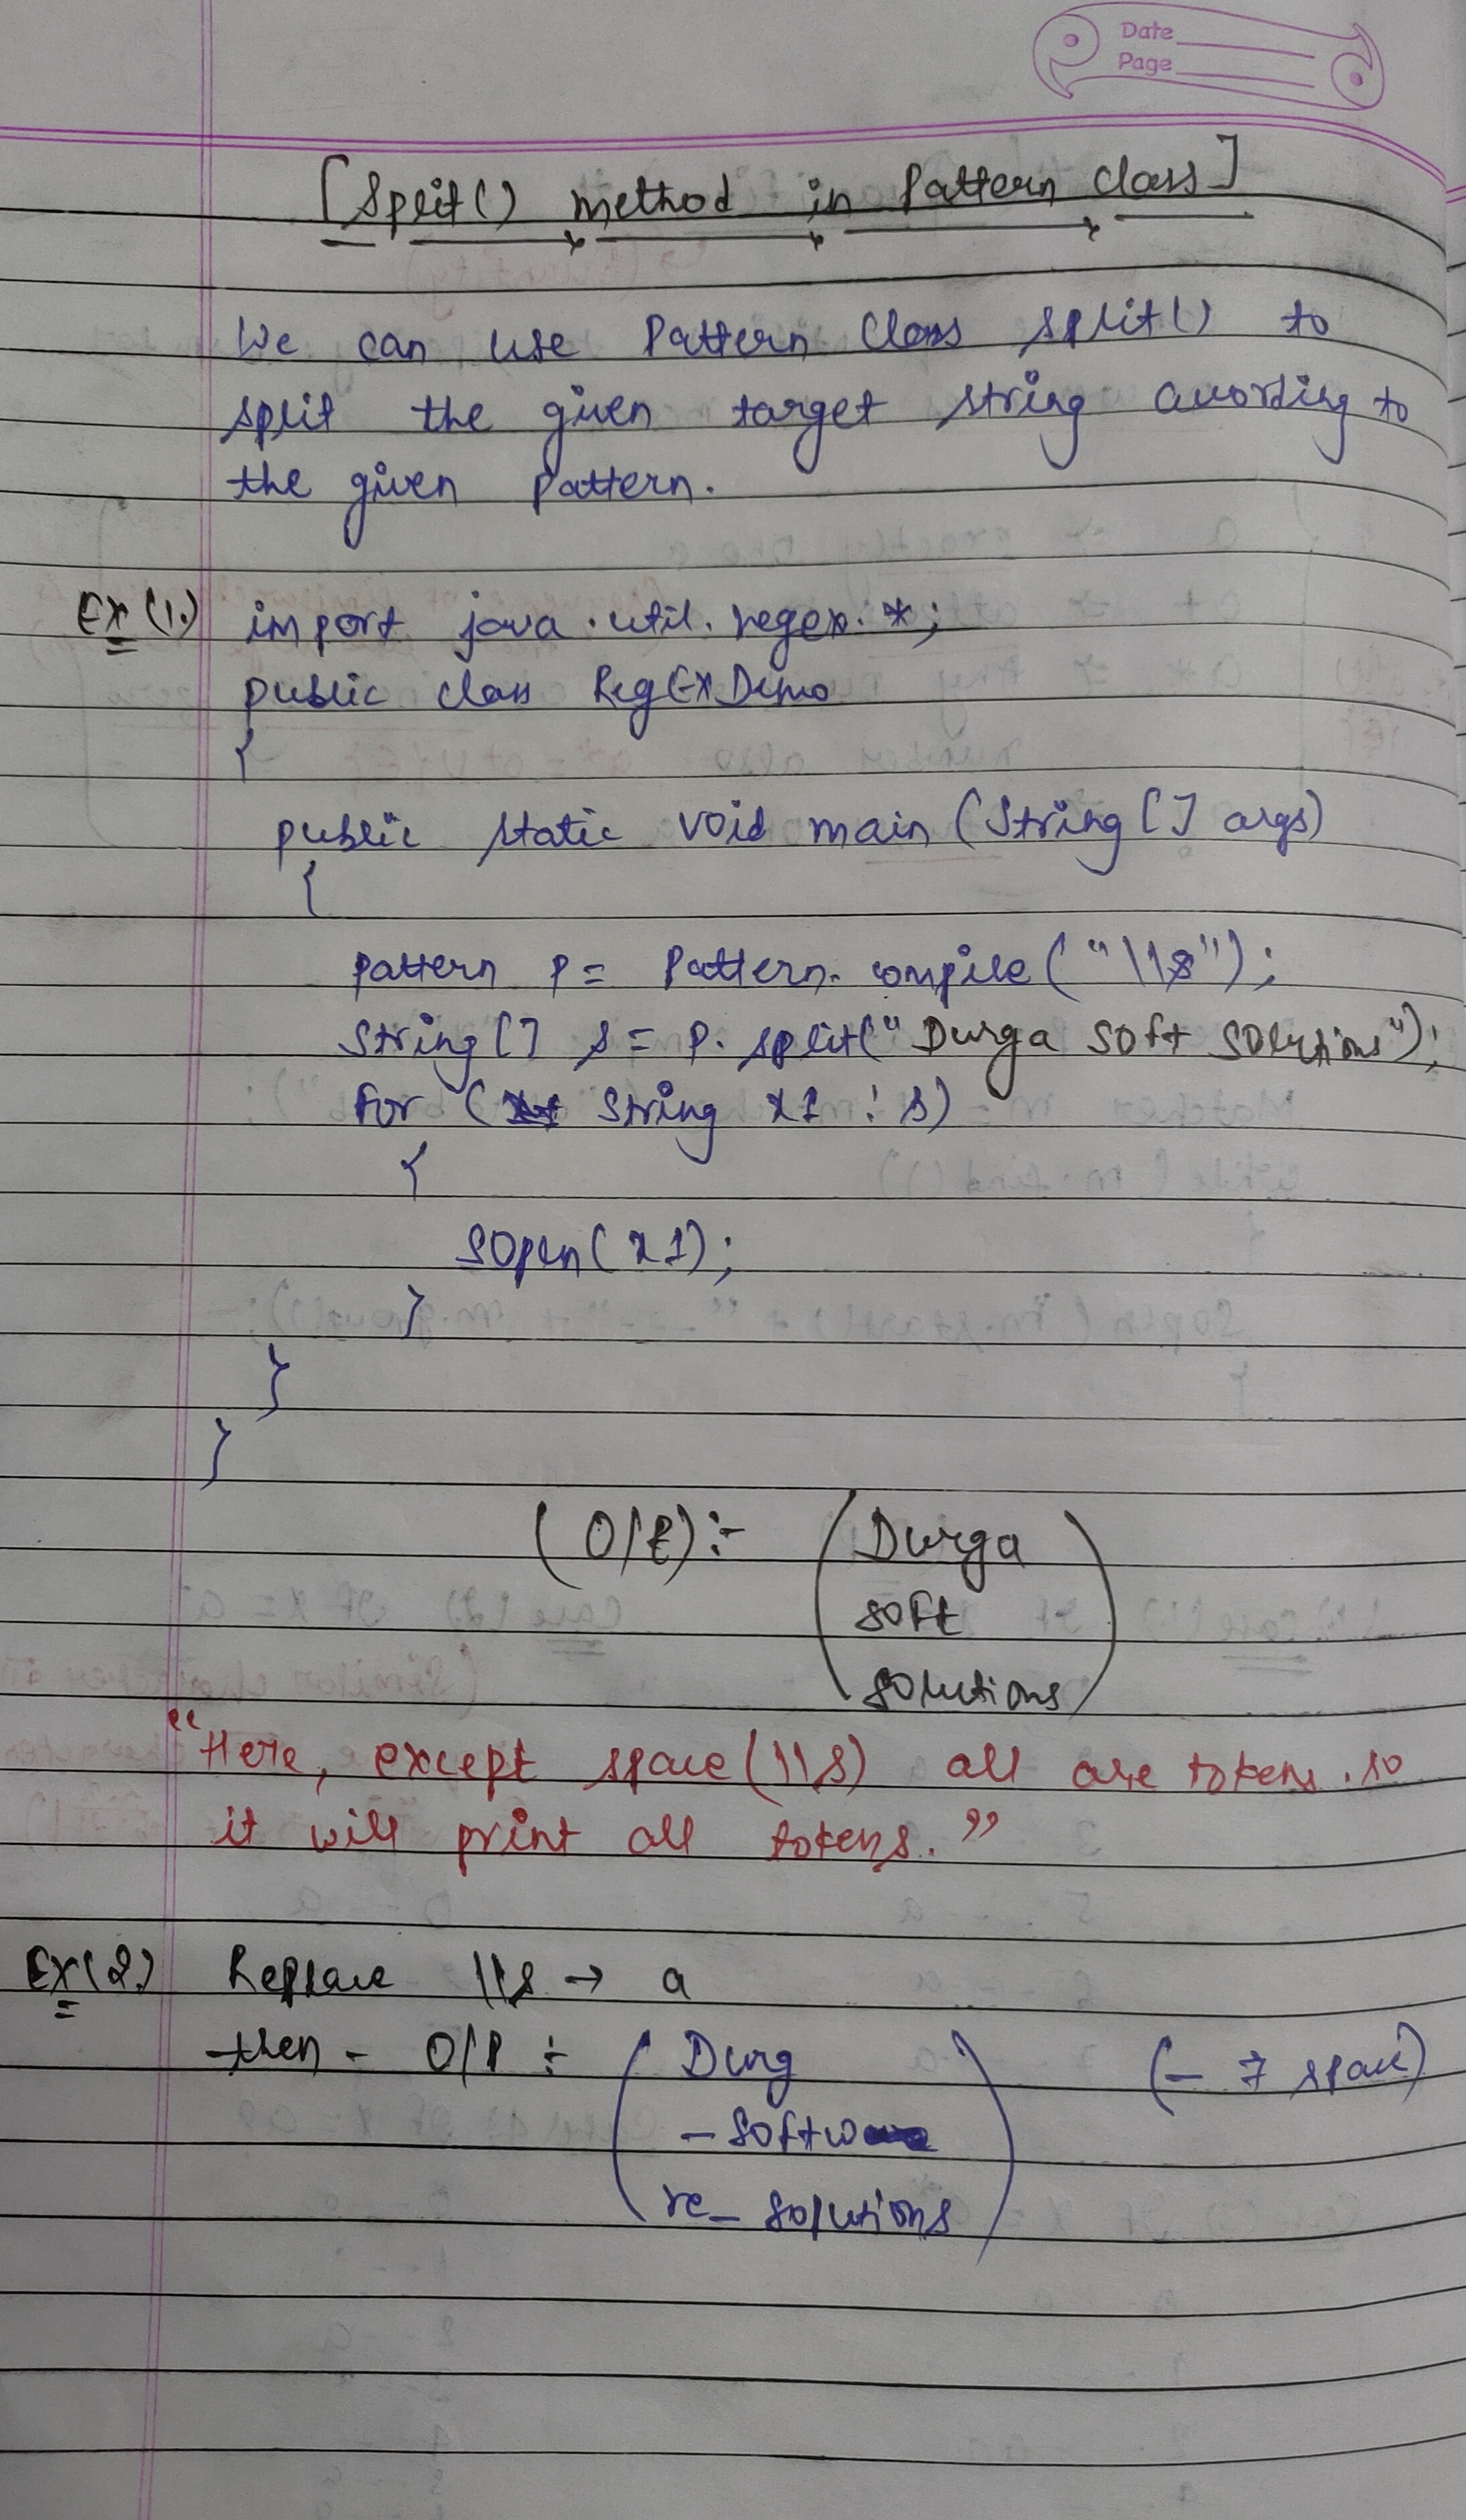 Date
Page
[Split() method in Pattern Class]
We can use Pattern Class split() to
split the given target string according to
the given pattern.
Ex (1.) import java.util.regex.*;
public class RegExDemo
{
public static void main (String [] args)
{
pattern p = Pattern.compile("\\s");
String [] s = p.split("Durga Soft Solutions");
for (String x1 : s)
{
SOpln(x1);
}
}
}
(O/P):- Durga
soft
solutions
"Here, except space (\\s) all are tokens. so
it will print all tokens."
Ex (2.) Replace \\s → a
then - O/P :- Durg (- → space)
- softw
re_ solutions